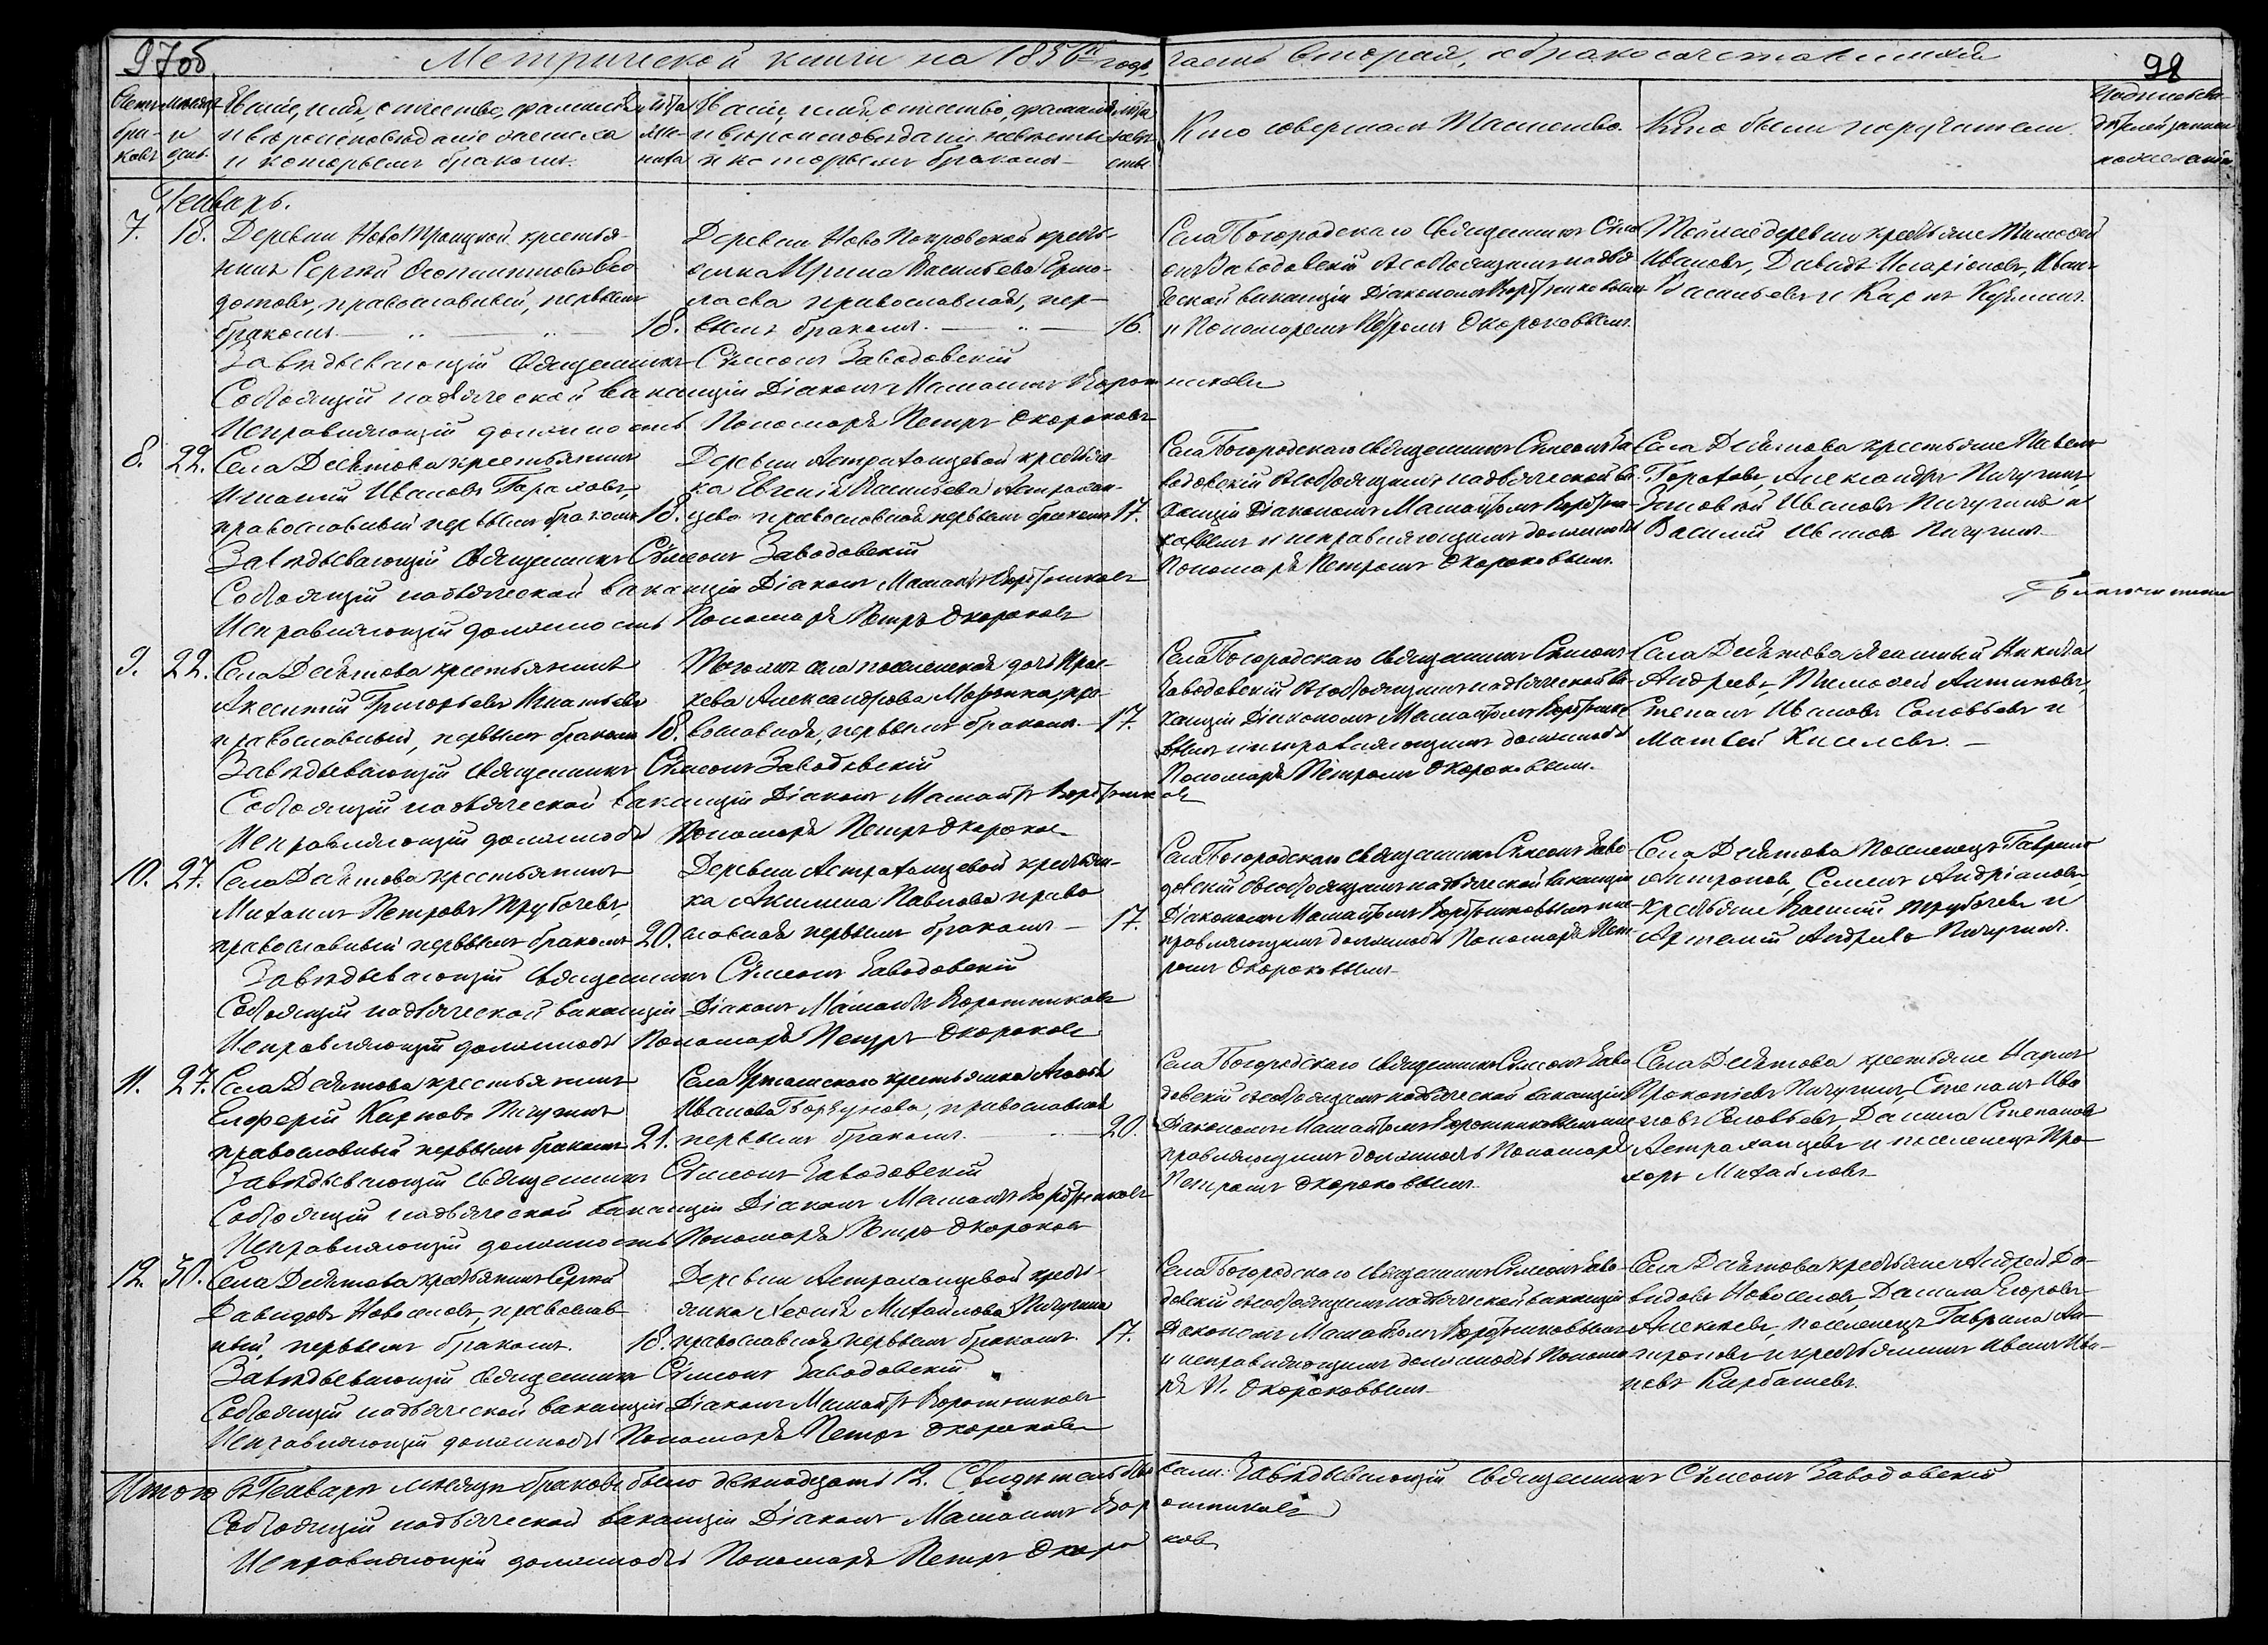 97об
98
Метрической книги на 1856й годъ, часть вторая, о бракосочетавшихся
Счетъ браковъ
Мѣсяцъ и день
Званіе, имя, отчество, фамилія
и вѣроисповѣданіе жениха
и которымъ бракомъ.
лѣта жениха
Званіе, имя, отчество, фамилія
и вѣроисповѣданіе невѣсты
и которымъ бракомъ
лѣта невѣсты
Кто совершалъ Таинство.
Кто были поручители.
Генварь.
7. 18.
Деревни Ново Троицкой крестья-
нинъ Сергѣй
православный, первымъ
бракомъ 18.
Деревни Ново Покровской кресть-
янка Ирина Васильева Ермо-
лаева православная, пер-
вымъ бракомъ. 16.
Села Богородскаго Священникъ Сѵме-
онъ Заводовскій
ческой вакансіи Діакономъ
и Пономаремъ Петромъ Окороковымъ.
Той же деревни крестьяне Тимофей
Ивановъ, Давидъ Иларіоновъ, Иванъ
Васильевъ и Карпъ Кузминъ.
Завѣдывающій Священникъ Сѵмеонъ Заводовскій
Состоящій на дьяческой вакансіи Діаконъ
Исправляющій должность Пономаря Петръ Окороковъ
8. 22.
Села Десятова крестьянинъ
Игнатій Ивановъ Гараховъ,
православный первымъ бракомъ 18.
Деревни Астраханцевой крестьян-
ка Евгенія Васильева Астрахан-
цева православная первымъ бракомъ 17.
Села Богородскаго Священникъ Сѵмеонъ За-
водовскій
вакансіи Діакономъ
и исправляющимъ должность
Пономаря Петромъ Окороковымъ.
Села Десятова крестьяне Павелъ
Александръ Пичугинъ
Зиновій Ивановъ Пичугинъ и
Василій Ивановъ Пичугинъ
Завѣдывающій Священникъ Сѵмеонъ Заводовскій
Состоящій на дьяческой вакансіи Діаконъ
Исправляющій должность Пономаря Петръ Окороковъ
9. 22.
Села Десятова крестьянинъ
Акентій Григорьевъ Игнатьевъ
православный, первымъ бракомъ 18.
Тогожъ села поселенская дочь Прас-
кева Александрова пра-
вославная, первымъ бракомъ 17.
Села Богородскаго Священникъ Сѵмеонъ
Заводовскій
вакансіи Діакономъ
и исправляющимъ должность
Пономаря Петромъ Окороковымъ.
Села Десятова Никита
Андреевъ, Тимофей Антиповъ,
Степанъ Ивановъ Соловьевъ и
Матвей Киселевъ.
Завѣдывающій Священникъ Сѵмеонъ Заводовскій
Состоящій на дьяческой вакансіи Діаконъ
Исправляющій должность Пономаря Петръ Окороковъ
10. 27.
Села Десятова крестьянинъ
Михаилъ Петровъ Трубачевъ,
православный первымъ бракомъ 20.
Деревни Астраханцевой крестьян-
ка Акилина Павлова право-
славная первымъ бракомъ 17.
Села Богородскаго Священникъ Сѵмеонъ Заво-
довскій
Діакономъ
исправляющимъ должность Пономаря Пет-
ромъ Окороковымъ
Села Десятова Поселенецъ Гаврило
Антроповъ, Семенъ Андріановъ,
крестьяне Василій Трубачевъ и
Артемій Андреевъ Пичугинъ.
Завѣдывающій Священникъ Сѵмеонъ Заводовскій
Состоящій на дьяческой вакансіи Діаконъ
Исправляющій должность Пономаря Петръ Окороковъ
11. 27.
Села Десятова крестьянинъ
Елферій Карповъ Пичугинъ
православный первымъ бракомъ 21.
Села Уртамскаго крестьянка Агафья
Иванова православная
первымъ бракомъ. 20.
Села Богородскаго Священникъ Сѵмеонъ Заво-
довскій
Діакономъ
исправляющимъ должность Пономаря
Петромъ Окороковымъ
Села Десятова крестьяне
Прокопіевъ Пичугинъ, Степанъ Ива-
новъ Соловьевъ, Данило Степановъ
Астраханцевъ и поселенецъ Про-
хоръ Михайловъ
Завѣдывающій Священникъ Сѵмеонъ Заводовскій
Состоящій на дьяческой вакансіи Діаконъ
Исправляющій должность Пономаря Петръ Окороковъ
12. 30.
Села Десятова крестьянинъ Сергѣй
Давидовъ Новоселовъ, православ-
ный, первымъ бракомъ. 18.
Деревни Астраханцевой кресть-
янка Михаилова Пичугина
православная первымъ бракомъ. 17.
Села Богородскаго Священникъ Сѵмеонъ Заво-
довскій
Діакономъ
и исправляющимъ должность Понома-
ря П. Окороковымъ
Села Десятова крестьяне Андрей Да-
видовъ Новоселовъ, Данило Егоровъ
Алексеевъ, поселенецъ Гаврило Ан-
троповъ и крестьянинъ Иванъ Ива-
новъ Карбашевъ.
Завѣдывающій Священникъ Сѵмеонъ Заводовскій
Состоящій на дьяческой вакансіи Діаконъ
Исправляющій должность Пономаря Петръ Окороковъ
Итого въ Генварѣ мѣсяцѣ браковъ было двенадцать 12. Завѣдывающій Священникъ Сѵмеонъ Заводовскій
Состоящій на дьяческой вакансіи Діаконъ
Исправляющій должность Пономаря Петръ Окороковъ